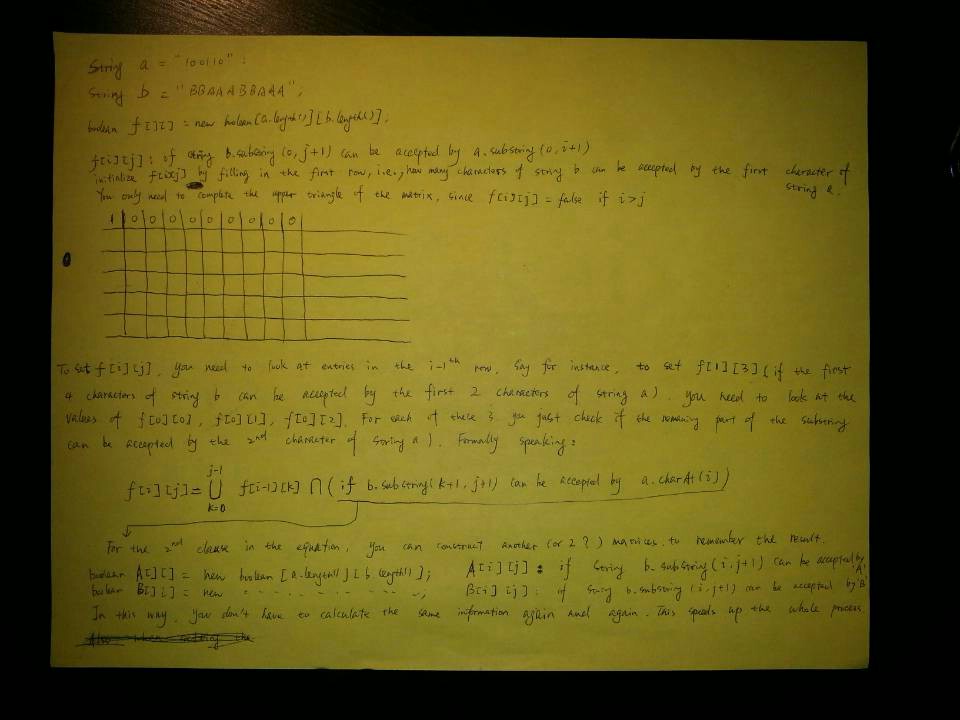 String a = "100110";
String b = "BBAAABBAAA";
boolean f[][] = new boolean[a.length()][b.length()];
f[i][j]: if string b.substring(0, j+1) can be accepted by a.substring(0, i+1)
initialize f[i][j] by filling in the first row, i.e., how many characters of string b can be accepted by the first character of string a.
You only need to complete the upper triangle of the matrix, since f[i][j] = false if i>j
1 0 0 0 0 0 0 0 0 0
0
To set f[i][j], you need to look at entries in the i-1th row. Say for instance, to set f[1][3] (if the first
4 characters of string b can be accepted by the first 2 characters of string a). you need to look at the
values of f[0][0], f[0][1], f[0][2]. For each of these 3 you just check if the remaining part of the substring
can be accepted by the 2nd character of string a). Formally speaking:
j-1
f[i][j]= ⋃ f[i-1][k] ⋂ (if b.substring(k+1, j+1) can be accepted by a.charAt(i))
k=0
For the 2nd clause in the equation, you can construct another (or 2?) matrices to remember the result.
boolean A[][] = new boolean [a.length()][b.length()]; A[i][j]: if string b.substring(i,j+1) can be accepted by 'A'
boolean B[][] = new - - - - - - - - -, B[i][j]: if string b.substring(i,j+1) can be accepted by 'B'
In this way, you don't have to calculate the same information again and again. This speeds up the whole process.
Also when